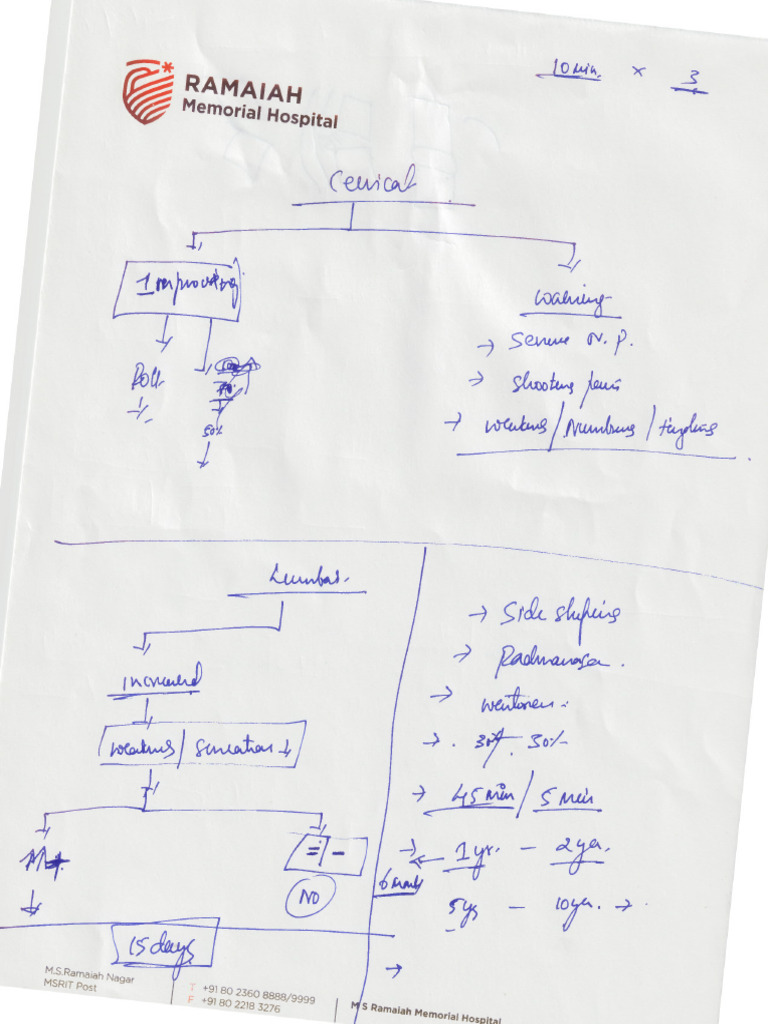 10 min. × 3
RAMAIAH
Memorial Hospital
Cervical
Improving
Warning
→ Severe N.P.
→ Shooting pain
→ weakness/Numbness/tingling
50%
Lumbar.
→ Side sleeping
→ Padmanasa.
increased
→
weakness/Sensation ↓
→ 30% 30%
→ 45 min/5 min
→ 1 yr. – 2 yr.
= / –
NO
5 yrs – 10 yr. →
15 days
→
M.S.Ramaiah Nagar
MSRIT Post
T +91 80 2360 8888/9999
F +91 80 2218 3276
M S Ramaiah Memorial Hospital